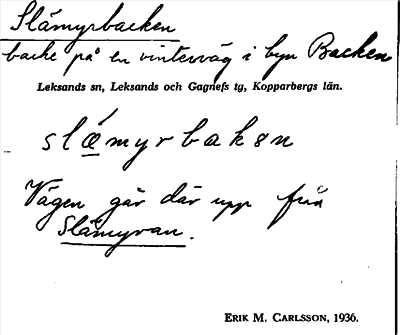 Slåmyrbacken
backe på en vinterväg i byn Backen
Leksands sn, Leksands och Gagnefs tg, Kopparbergs län.
slǫ́myrbakən
Vägen går där upp från
Slåmyran.
ERIK M. CARLSSON, 1936.